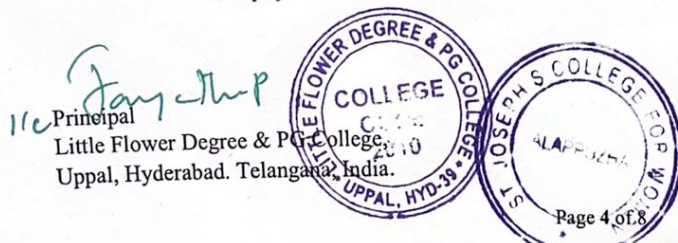 I/c Principal
Little Flower Degree & PG College,
Uppal, Hyderabad. Telangana, India.
LITTLE FLOWER DEGREE & PG COLLEGE
COLLEGE
2010
* UPPAL, HYD-39 *
ST JOSEPH S COLLEGE FOR WOMEN
ALAPPUZHA
Page 4 of 8